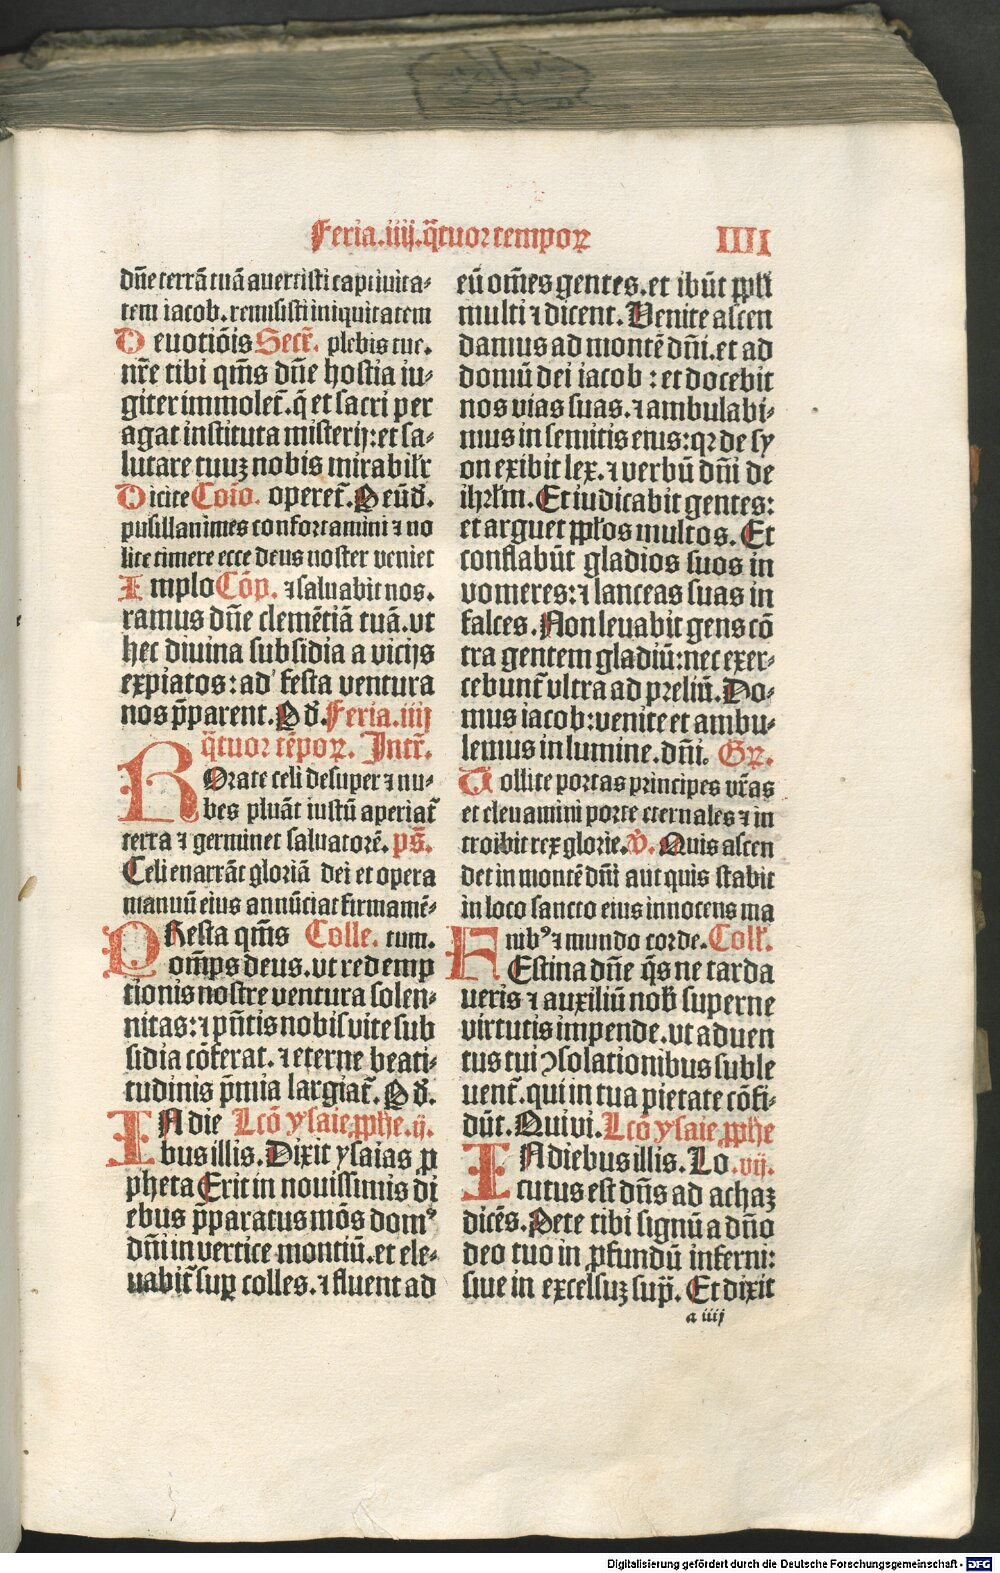 Feria.iiij.q̄tuor tempoꝝ IIII
dn̄e terrā tuā auertisti captiuita-
tem iacob. remisisti iniquitatem
Deuotiōis Secr̄. plebis tue.
nr̄e tibi qm̄s dn̄e hostia iu-
giter immolet̄. q̄ et sacri per
agat instituta misterij: et sa-
lutare tuuꝫ nobis mirabilr̄
Dicite Coīo. operet̄. P eūd̄.
pusillanimes confortamini ⁊ no
lite timere ecce deus noster veniet
Implo Cōp. ⁊ saluabit nos.
ramus dn̄e clemētiā tuā. vt
hec diuina subsidia a vicijs
expiatos: ad festa ventura
nos p̄parent. P d̄. Feria.iiij
q̄tuor tēpoꝝ. Intr̄.
ROrate celi desuper ⁊ nu-
bes pluāt iustū aperiat̄
terra ⁊ germinet saluatorē. ps̄.
Celi enarrāt gloriā dei et opera
manuū eius annūciat firmamē-
PResta qm̄s Colle. tum.
om̄ps deus. vt redemp
tionis nostre ventura solen-
nitas: ⁊ pn̄tis nobis vite sub
sidia cōferat. ⁊ eterne beati-
tudinis p̄mia largiat̄. P d̄.
IN die Lcō ysaie ꝓphe.ij.
bus illis. Dixit ysaias ꝓ
pheta Erit in nouissimis di
ebus p̄paratus mōs domꝰ
dn̄i in vertice montiū. et ele-
uabit̄ suꝑ colles. ⁊ fluent ad
eū om̄es gentes. et ibūt ppl̄i
multi ⁊ dicent. Venite ascen
damus ad montē dn̄i. et ad
domū dei iacob: et docebit
nos vias suas. ⁊ ambulabi-
mus in semitis eius: qꝛ de sy
on exibit lex. ⁊ verbū dn̄i de
ihrl̄m. Et iudicabit gentes:
et arguet ppl̄os multos. Et
conflabūt gladios suos in
vomeres: ⁊ lanceas suas in
falces. Non leuabit gens cō
tra gentem gladiū: nec exer-
cebunt̄ vltra ad preliū. Do-
mus iacob: venite et ambu-
lemus in lumine. dn̄i. Gꝝ.
Tollite portas principes vr̄as
et eleuamini porte eternales ⁊ in
troibit rex glorie. v̄. Quis ascen
det in montē dn̄i aut quis stabit
in loco sancto eius innocens ma
nibꝰ ⁊ mundo corde. Coll̄.
FEstina dn̄e q̄s ne tarda
ueris ⁊ auxiliū nob̄ superne
virtutis impende. vt aduen
tus tui ↄsolationibus suble
uent̄. qui in tua pietate cōfi-
dūt. Qui vi. Lcō ysaie ꝓphe
IN diebus illis. Lo .vij.
cutus est dn̄s ad achaꝫ
dicēs. Pete tibi signū a dn̄o
deo tuo in ꝓfundū inferni:
siue in excelsuꝫ sup̄. Et dixit
a iiij
Digitalisierung gefördert durch die Deutsche Forschungsgemeinschaft - DFG